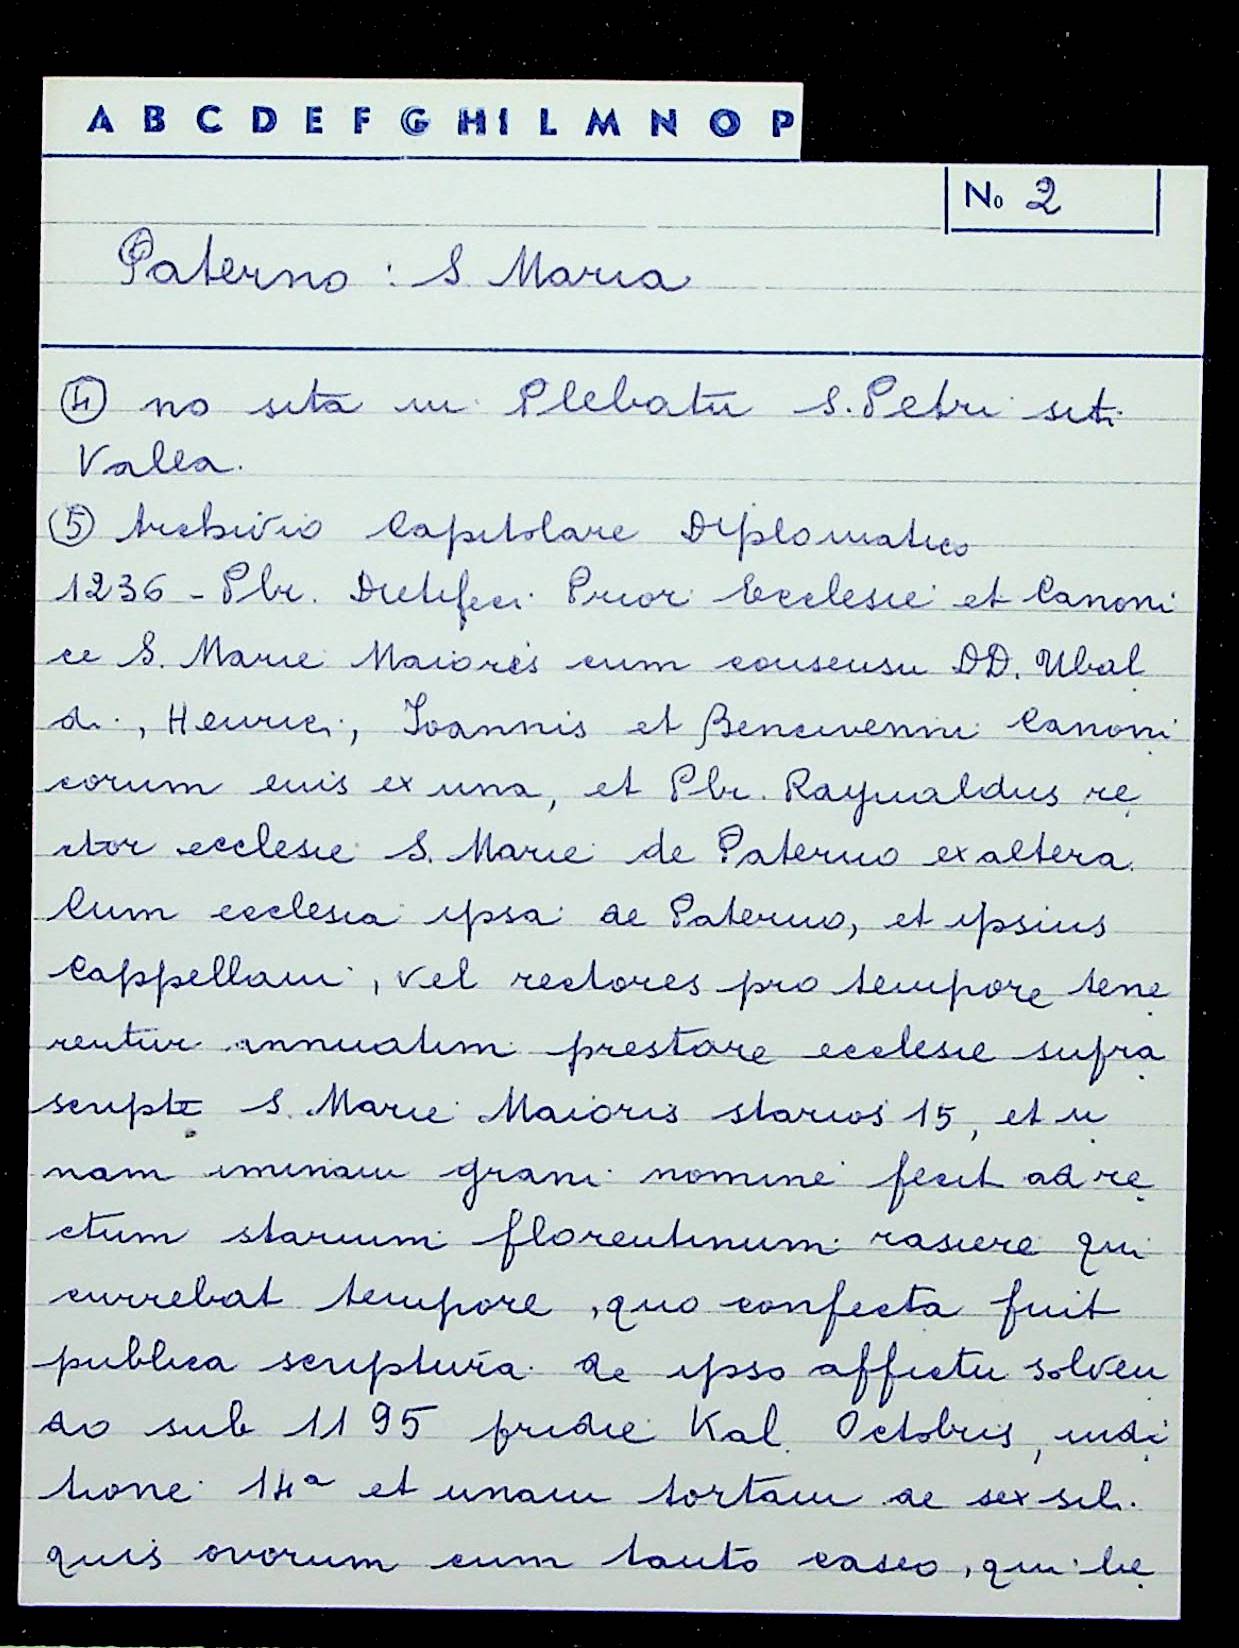 A B C D E F G H I L M N O P
No 2
Paterno : S. Maria
④ no sita in Plebatu S. Petri siti
Valea.
⑤ Archivio Capitolare Diplomatico
1236 - Pbr. Prior Ecclesie et Canoni
ce S. Marie Maioris cum consensu DD. Ubal
di, Henrici, Ioannis et Bencivenni Canoni
corum eius ex una, et Pbr. Raynaldus re
ctor ecclesie S. Marie de Paterno ex altera.
Cum ecclesia ipsa de Paterno, et ipsius
Cappellani, vel rectores pro tempore tene
rentur annuatim prestare ecclesie supra
scripte S. Marie Maioris starios 15, et u
nam iminam grani nomine ficit ad re
ctum starium florentinum rasiere qui
currebat tempore, quo confecta fuit
publica scriptura de ipso affictu solven
do sub 1195 pridie Kal. Octobris, indi
tione 14ª et unam tortam de sex sili
quis ovorum cum tanto caseo, qui be